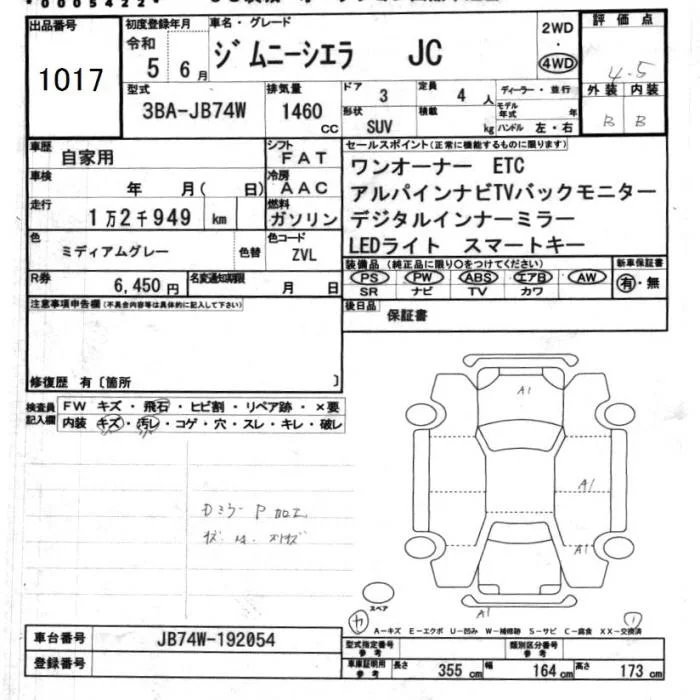 *0005422*
出品番号
1017
初度登録年月
令和
5 6月
車名・グレード
ジムニーシエラ JC
2WD
・
4WD
評価点
4.5
外装 内装
B B
型式
3BA-JB74W
排気量
1460 CC
ドア
3
定員
4 人
形状
SUV
積載
kg
ディーラー・並行
モデル年式 年
ハンドル 左・右
車歴
自家用
シフト
FAT
車検
年 月( 日)
冷房
AAC
走行
1万2千949 km
燃料
ガソリン
色
ミディアムグレー
色替
色コード
ZVL
R券
6,450円
名変通知期限
月 日
セールスポイント(正常に機能するものに限ります)
ワンオーナー ETC
アルパインナビTVバックモニター
デジタルインナーミラー
LEDライト スマートキー
装備品(純正品に限り○をつけてください)
PS PW ABS エアB AW
SR ナビ TV カワ
新車保証書
有・無
後日品
保証書
注意事項申告欄(不具合内容等は具体的に記入して下さい)
修復歴 有〔箇所 〕
検査員
記入欄
FW キズ・飛石・ヒビ割・リペア跡・×要
内装 キズ・汚レ・コゲ・穴・スレ・キレ・破レ
Dミラー P加工
A1
A1
A1
A1
スペア
A-キズ E-エクボ U-凹み W-補修跡 S-サビ C-腐食 XX-交換済
車台番号
JB74W-192054
登録番号
型式指定番号
参考
類別区分番号
参考
車庫証明用
参考
長さ 355 cm 幅 164 cm 高さ 173 cm